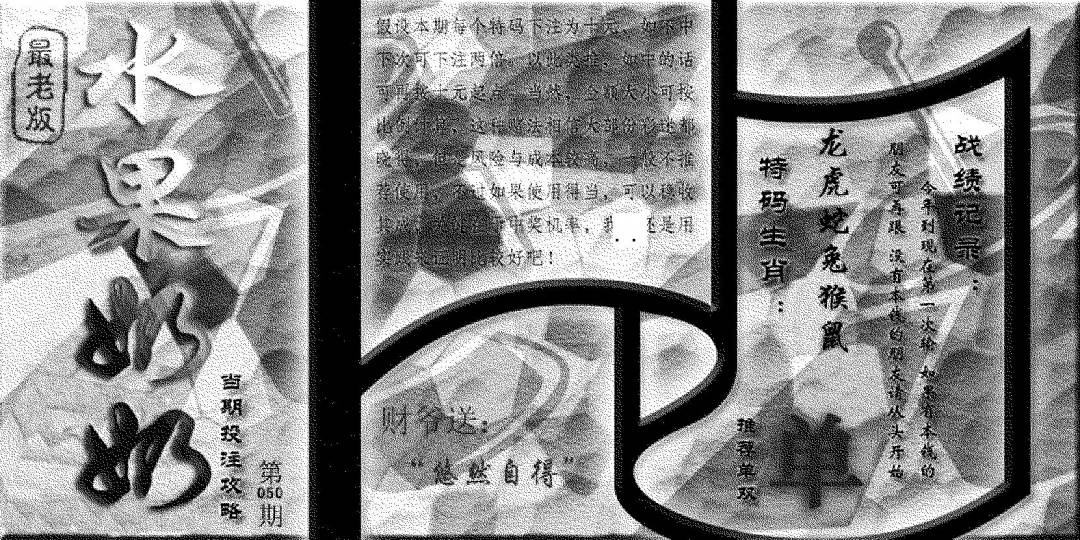 最老版
水果奶奶
当期投注攻略
第050期
假设本期每个特码下注为十元、如不中
下次可下注两倍。以此类推，如中的话
可再按十元起点。当然，金额大小可按
比例计算，这种赌法相信大部份彩迷都
风险与成本较高，一般不推
荐使用，不过如果使用得当，可以稳收
中奖机率，我 还是用
比较好吧！
财爷送：
“悠然自得”
战绩记录：
今年到现在第一次输 如果有本钱的
朋友可再跟 没有本钱的朋友请从头开始
龙虎蛇兔猴鼠
特码生肖：
单
推荐单双